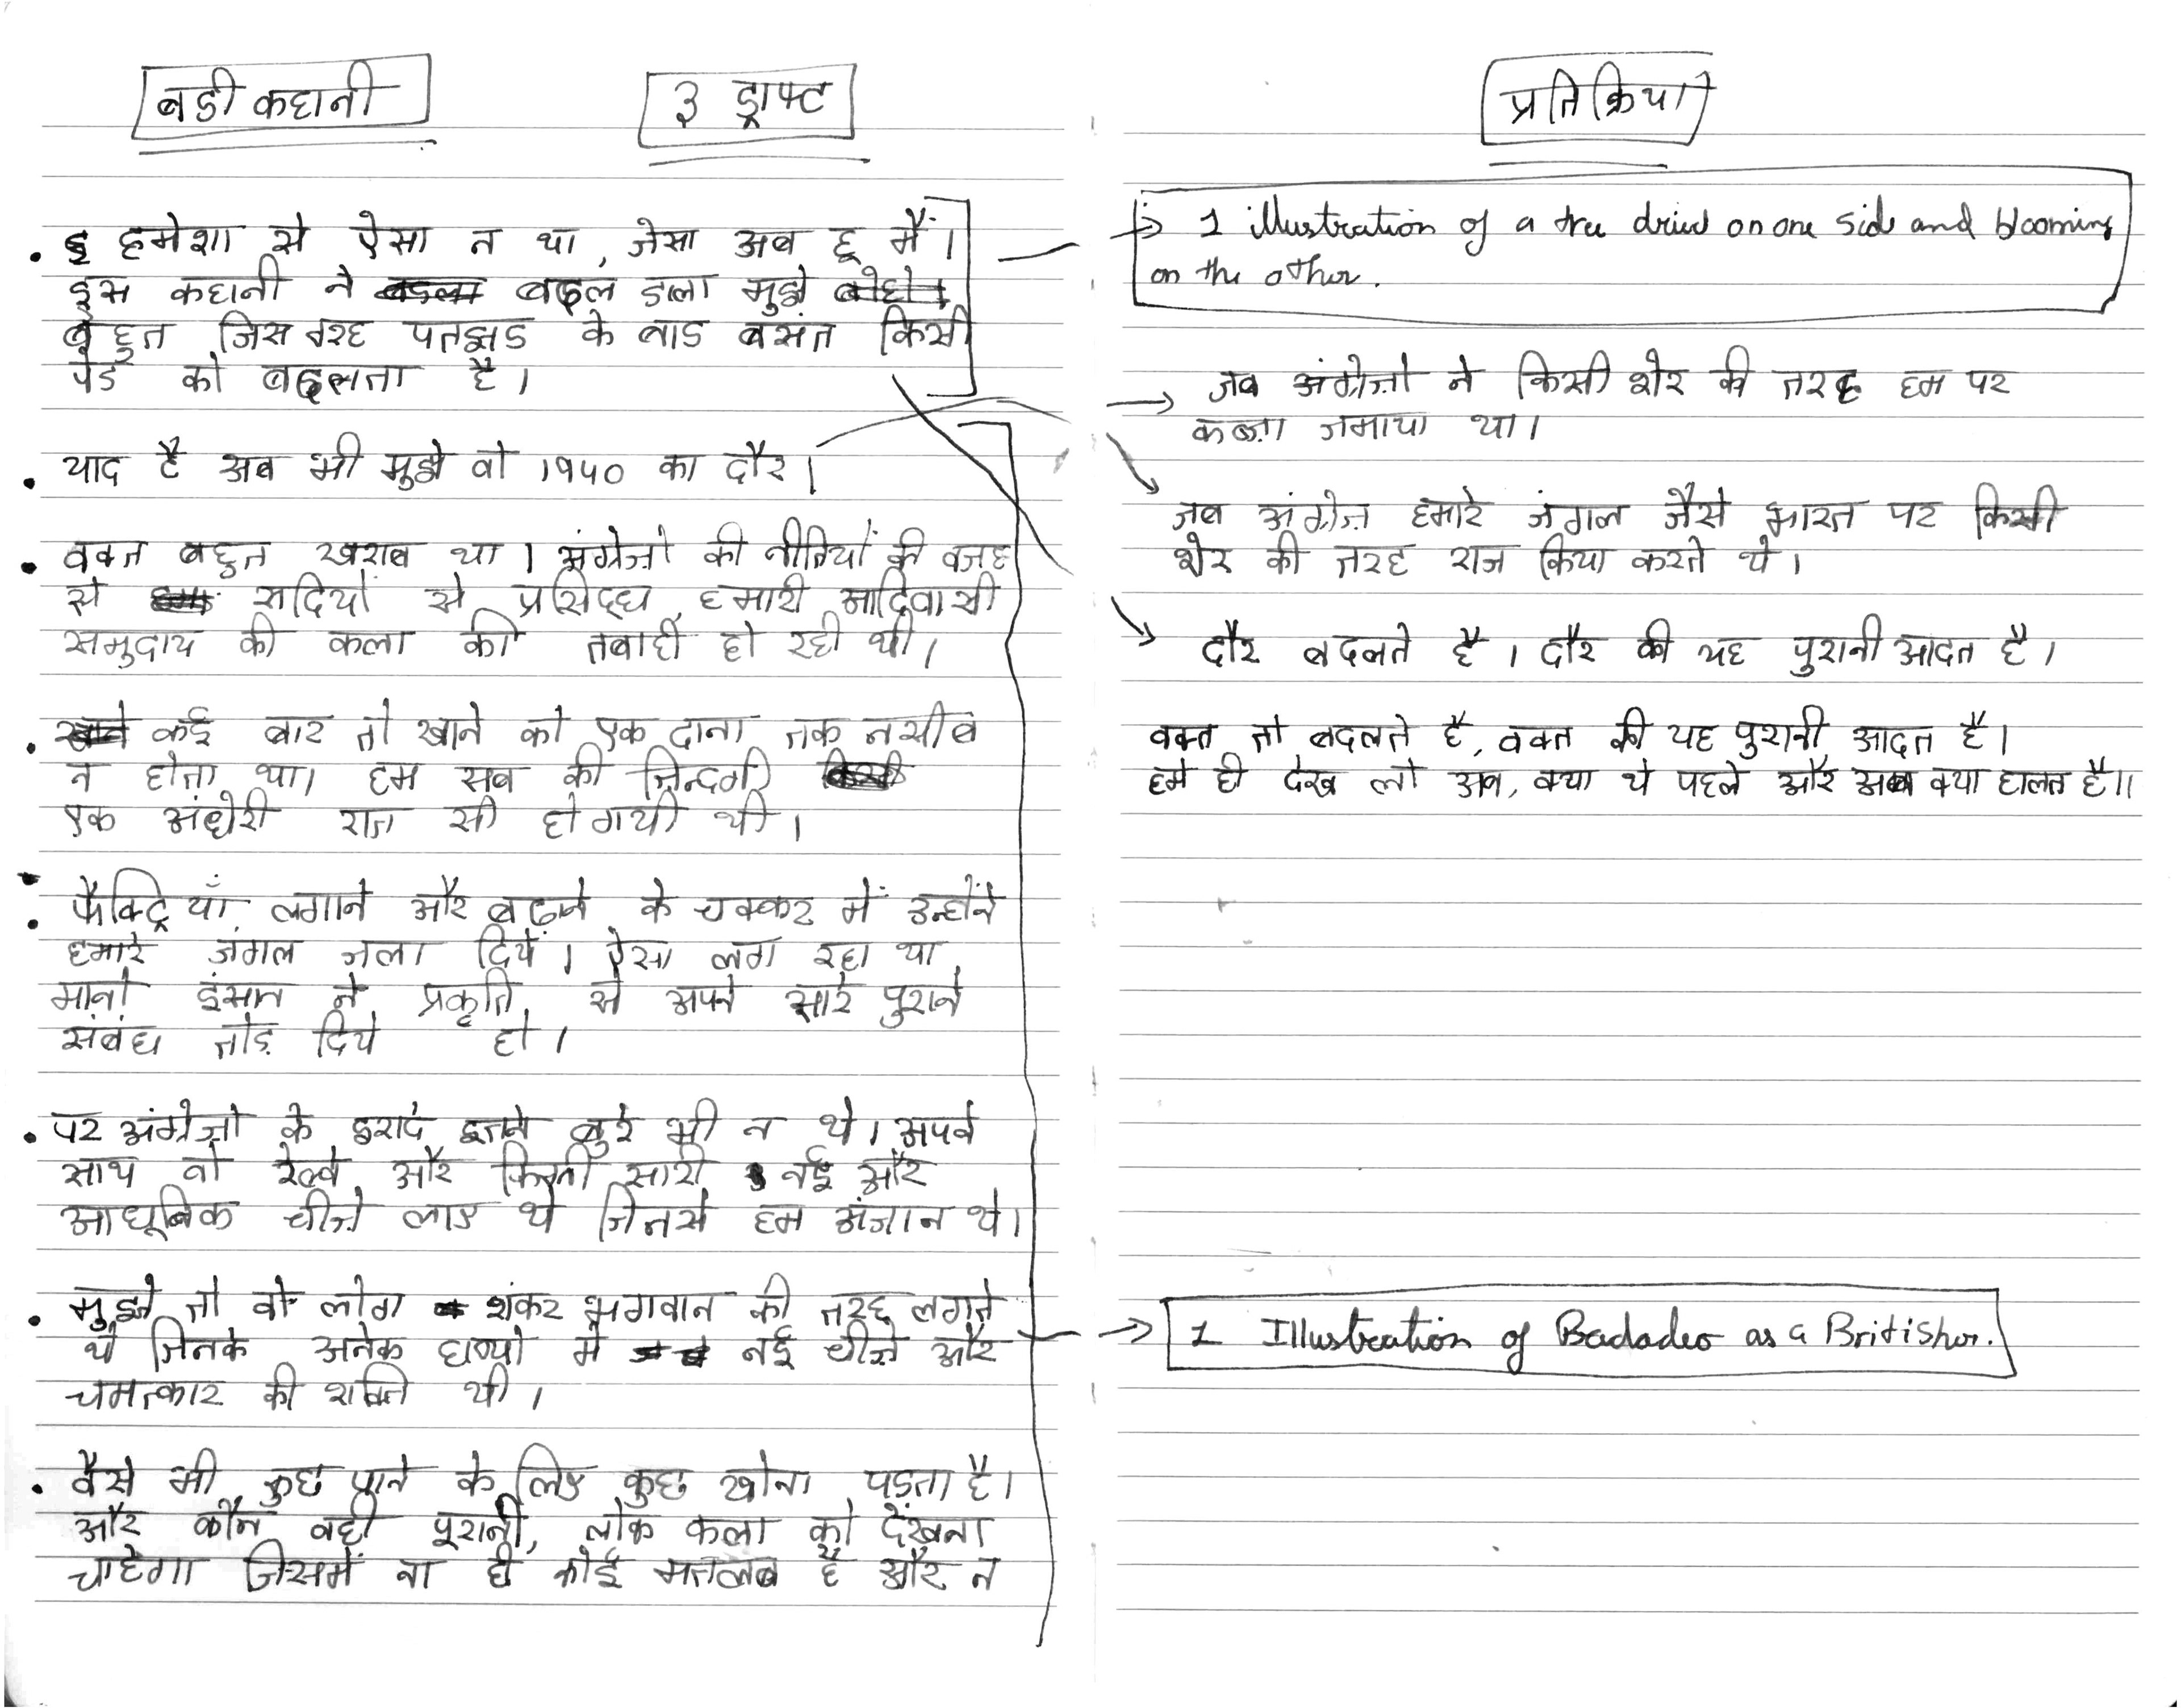 बडी कहानी
३ ड्राफ्ट
हमेशा से ऐसा न था, जेसा अब हू मैं।
इस कहानी ने बदल डाला मुझे
बहुत जिस तरह पतझड के बाड बसंत किसी
पेड को बदलता है।
याद है अब भी मुझे वो १९५० का दौर।
वक्त बहुत खराब था। अंग्रेज़ो की नीतियों की वजह
से सदियों से प्रसिद्ध, हमारी आदिवासी
समुदाय की कला की तबाही हो रही थी।
कई बार तो खाने को एक दाना तक नसीब
न होता था। हम सब की ज़िन्दगी
एक अंधेरी रात सी हो गयी थी।
फैक्ट्रियाँ लगाने और बढाने के चक्कर में उन्होंने
हमारे जंगल जला दिये। ऐसा लग रहा था
मानो इंसान ने प्रकृति से अपने सारे पुराने
संबंध तोड़ दिये हो।
पर अंग्रेज़ो के इरादे इतने बुरे भी न थे। अपने
साथ वो रेल्वे और कितनी सारी नई और
आधूनिक चीज़े लाए थे जिनसे हम अंजान थे।
मुझे तो वो लोग शंकर भगवान की तरह लगते
थे जिनके अनेक हाथो में नई चीज़े और
चमत्कार की शक्ति थी।
वैसे भी कुछ पाने के लिए कुछ खोना पडता है।
और कौन वही पूरानी, लोक कला को देंखना
चाहेगा जिसमें ना ही कोई मतलब है और न
प्रतिक्रिया
→ 1 illustration of a tree dried on one side and blooming
on the other.
→ जब अंग्रेज़ो ने किसी शेर की तरह हम पर
कब्ज़ा जमाया था।
जब अंग्रेज़ हमारे जंगल जैसे भारत पर किसी
शेर की तरह राज किया करते थे।
दौर बदलते है। दौर की यह पुरानी आदत है।
वक्त तो बदलते है, वक्त की यह पुरानी आदत है।
हमे ही देख लो अब, क्या थे पहले और अब क्या हालत है॥
→ 1 Illustration of Badadeo as a Britisher.